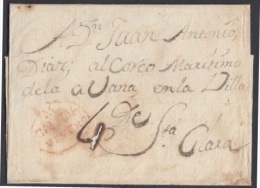 A Dn Juan Antonio
Diaz, al Coreo Maritimo
de la aVana, en la Villa
de
Sta Clara